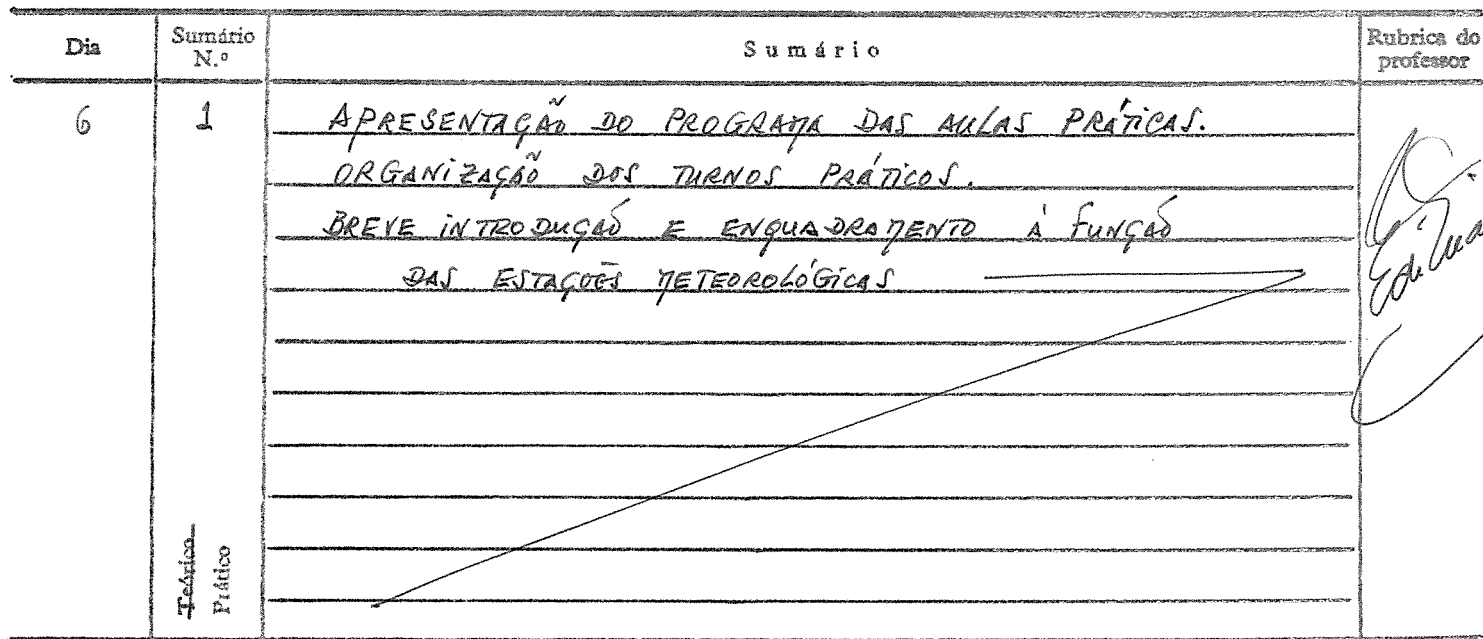 Dia
Sumário
N.º
Sumário
Rubrica do
professor
6
1
APRESENTAÇÃO DO PROGRAMA DAS AULAS PRÁTICAS.
ORGANIZAÇÃO DOS TURNOS PRÁTICOS.
BREVE INTRODUÇÃO E ENQUADRAMENTO À FUNÇÃO
DAS ESTAÇÕES METEOROLÓGICAS
Teórico
Prático